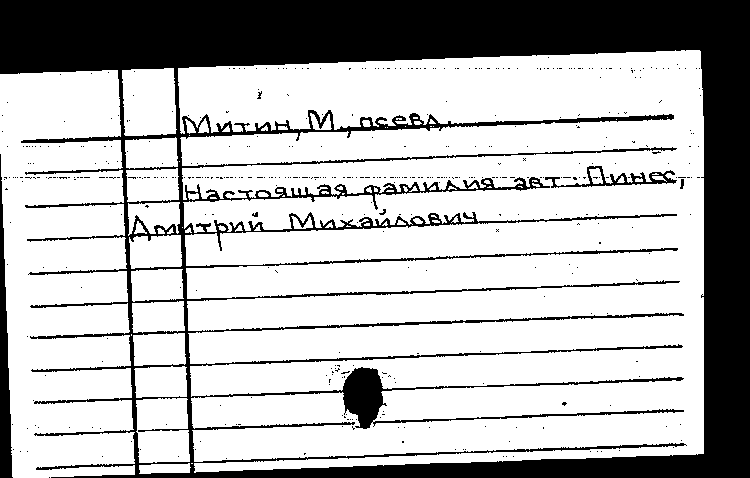 Митин, М., псевд.
Настоящая фамилия авт.: Пинес,
Дмитрий Михайлович